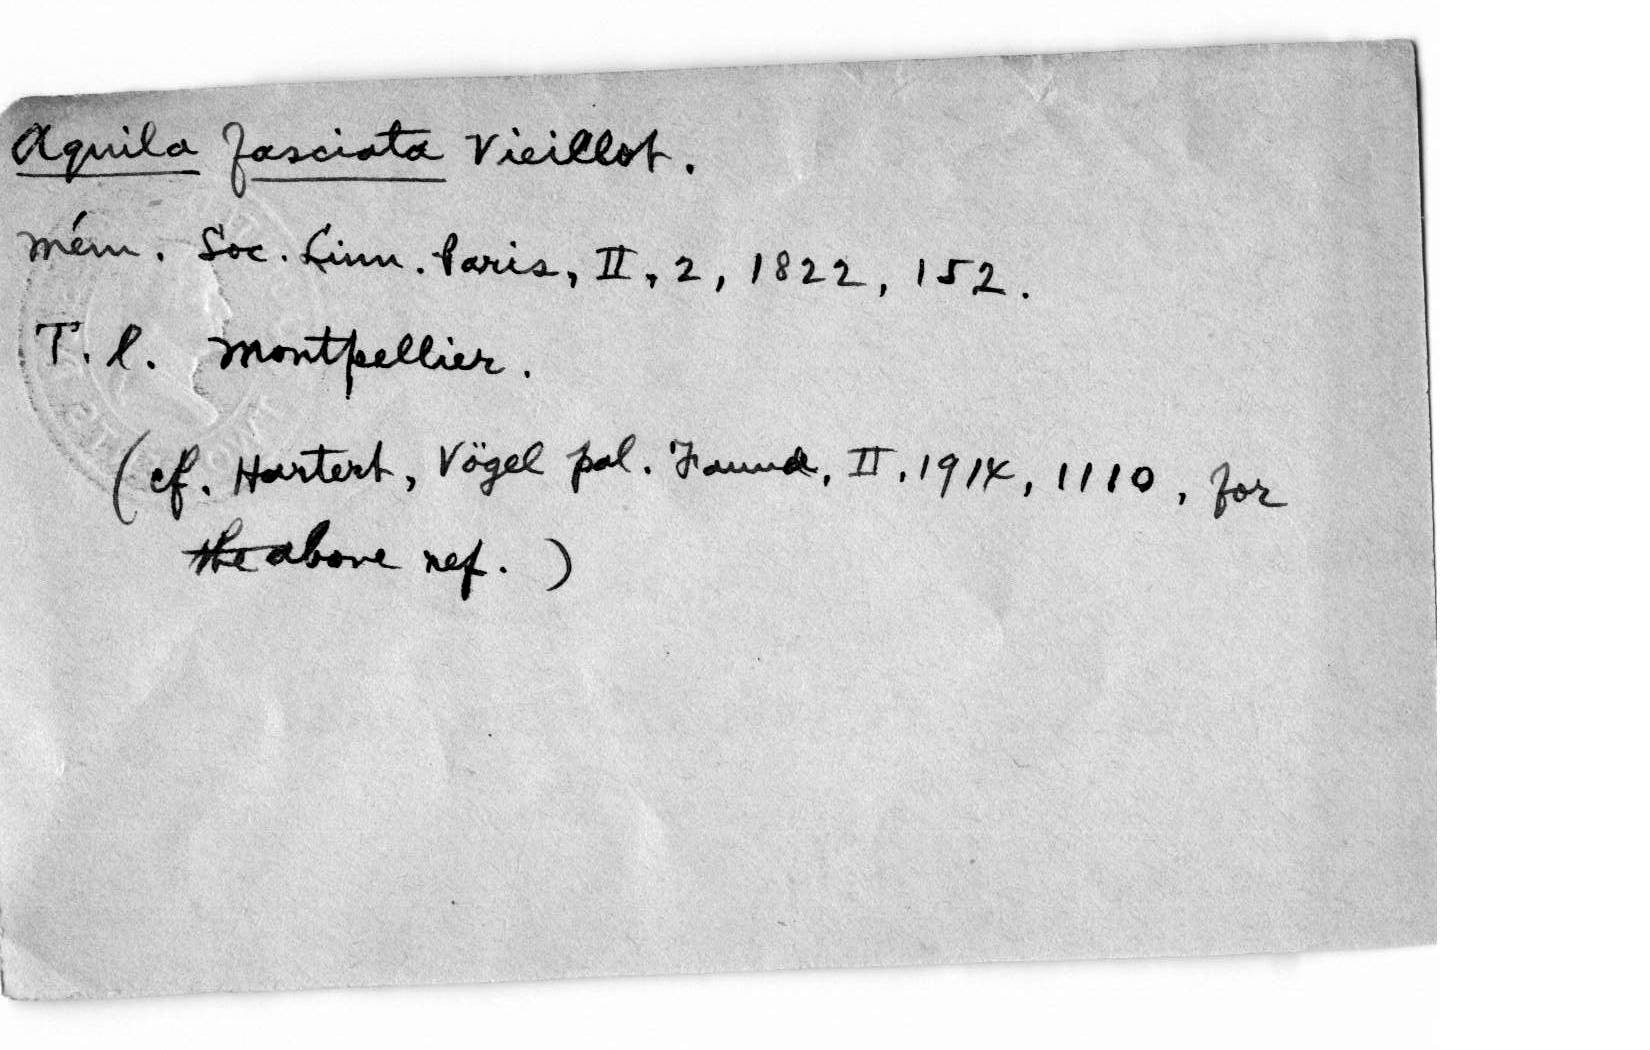 Aquila fasciata Vieillot.
Mém. Soc. Linn. Paris, II, 2, 1822, 152.
T. l. Montpellier.
(cf. Hartert, Vögel pal. Fauna, II, 1914, 1110, for
the above ref.)